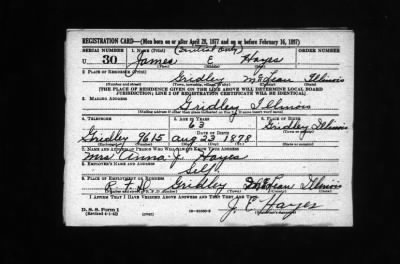 REGISTRATION CARD—(Men born on or after April 28, 1877 and on or before February 16, 1897)
SERIAL NUMBER 1. NAME (Print) (Initial only) ORDER NUMBER
U 30 James E Hayes
2. PLACE OF RESIDENCE (Print)
Gridley McLean Illinois
(THE PLACE OF RESIDENCE GIVEN ON THE LINE ABOVE WILL DETERMINE LOCAL BOARD
JURISDICTION; LINE 2 OF REGISTRATION CERTIFICATE WILL BE IDENTICAL)
3. MAILING ADDRESS
Gridley Illinois
4. TELEPHONE 5. AGE IN YEARS 6. PLACE OF BIRTH
63 Gridley
DATE OF BIRTH
Gridley 9615 Aug 23 1878 Illinois
7. NAME AND ADDRESS OF PERSON WHO WILL ALWAYS KNOW YOUR ADDRESS
Mrs Anna J. Hayes
8. EMPLOYER'S NAME AND ADDRESS
Self
9. PLACE OF EMPLOYMENT OR BUSINESS
R.F.D. Gridley McLean Illinois
I AFFIRM THAT I HAVE VERIFIED ABOVE ANSWERS AND THAT THEY ARE TRUE.
D. S. S. Form 1
(Revised 4-1-42) J. E. Hayes